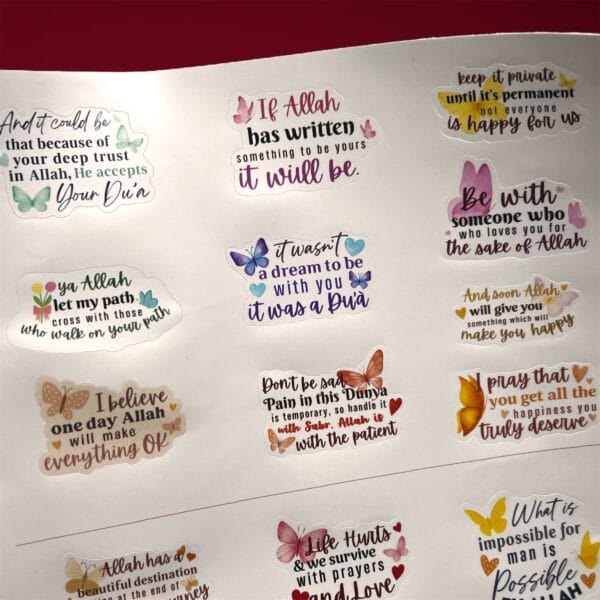 And it could be
that because of
your deep trust
in Allah, He accepts
Your Du'a
If Allah
has written
something to be yours
it will be.
keep it private
until it's permanent
not everyone
is happy for us
Be with
someone who
who loves you for
the sake of Allah
ya Allah
let my path
cross with those
who walk on your path
it wasn't
a dream to be
with you
it was a Du'à
And soon Allah
will give you
something which will
make you happy
I believe
one day Allah
will make
everything OK
Don't be sad
Pain in this Dunya
is temporary, so handle it
with Sabr, Allah is
with the patient
I pray that
you get all the
happiness you
truly deserve
Allah has a
beautiful destination
at the end of
Life Hurts
& we survive
with prayers
and Love
What is
impossible for
man is
Possible
ALLAH